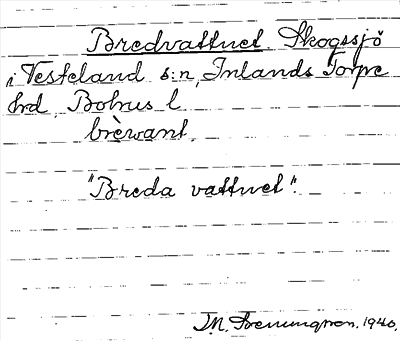 Bredvattnet. Skogssjö
i Vesteland s:n, Inlands Torpe
hrd, Bohus l.
brèvant.
"Breda vattnet".
T.M. Svenungsson. 1940.